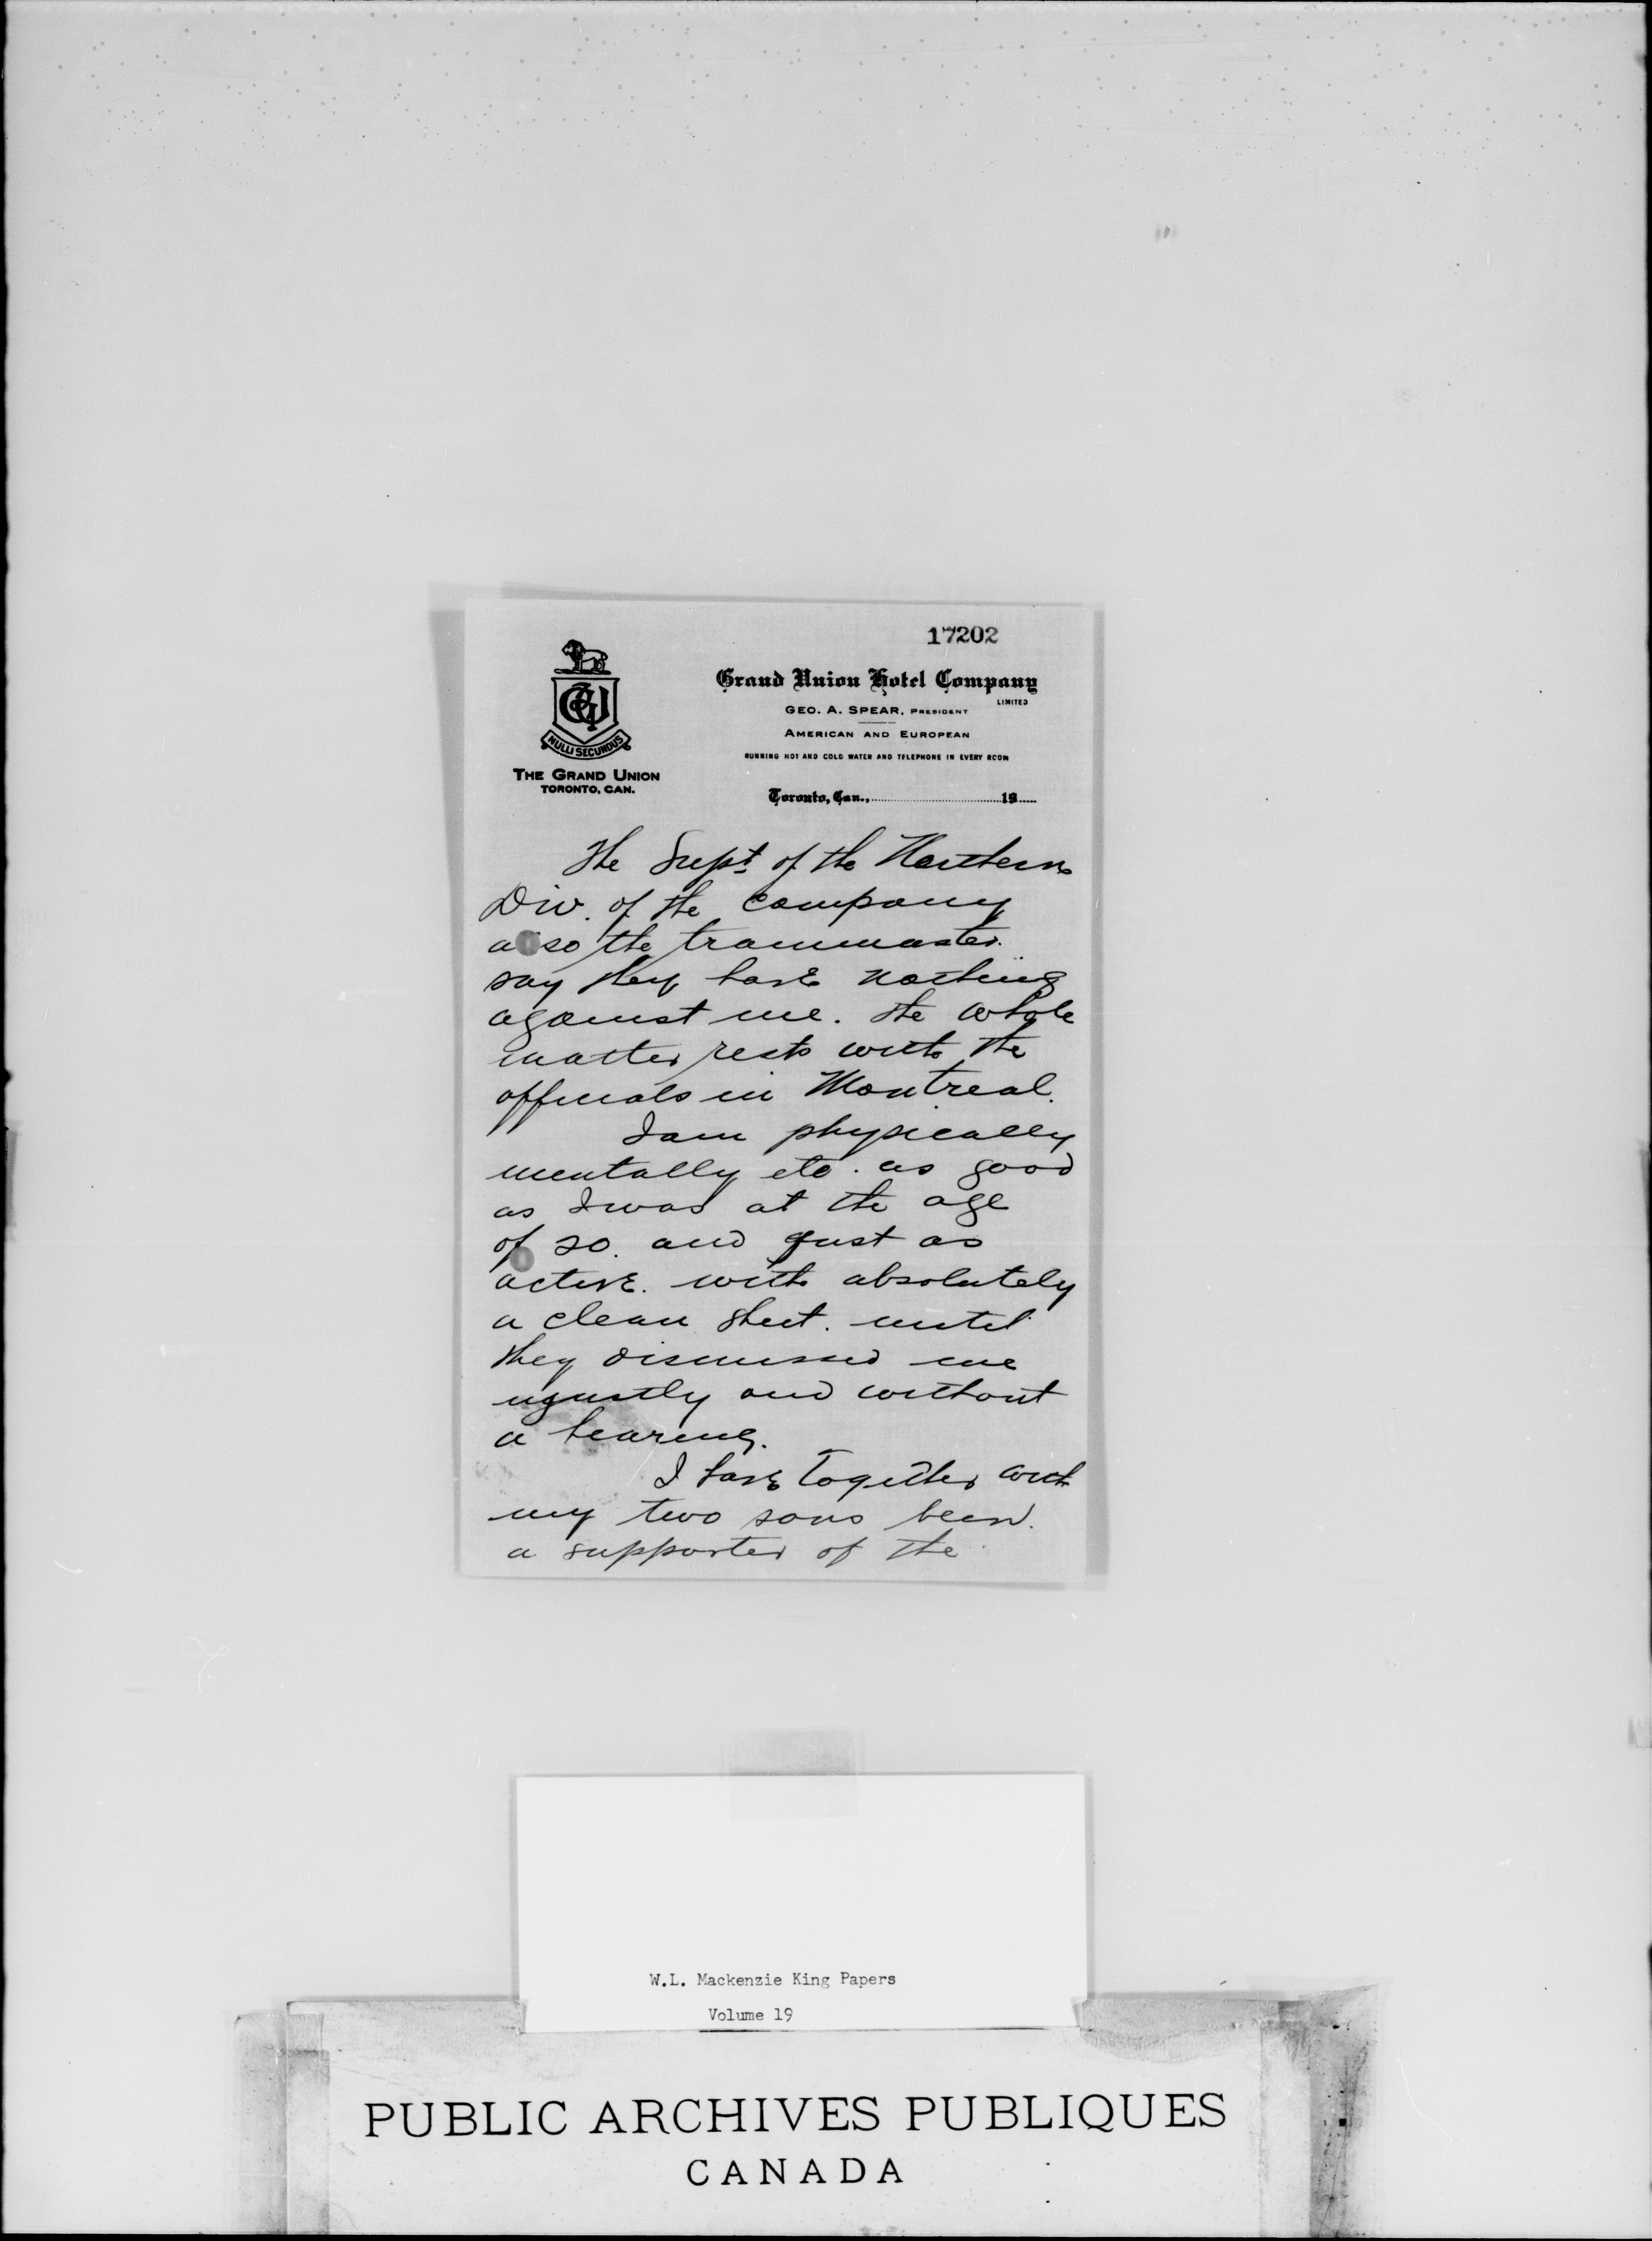 17202
Grand Union Hotel Company
LIMITED
GEO. A. SPEAR, PRESIDENT
AMERICAN AND EUROPEAN
RUNNING HOT AND COLD WATER AND TELEPHONE IN EVERY ROOM
GUH
NULLI SECUNDUS
THE GRAND UNION
TORONTO, CAN.
Toronto, Can.,..............................19.....
The Supt. of the Northern
Div. of the company
also the trainmaster.
say they have nothing
against me. The whole
matter rests with the
officials in Montreal.
I am physically
mentally etc. as good
as I was at the age
of 20. and just as
active. with absolutely
a clean sheet. until
they dismissed me
ujustly and without
a hearing.
I have together with
my two sons been.
a supporter of the
W.L. Mackenzie King Papers
Volume 19
PUBLIC ARCHIVES PUBLIQUES
CANADA